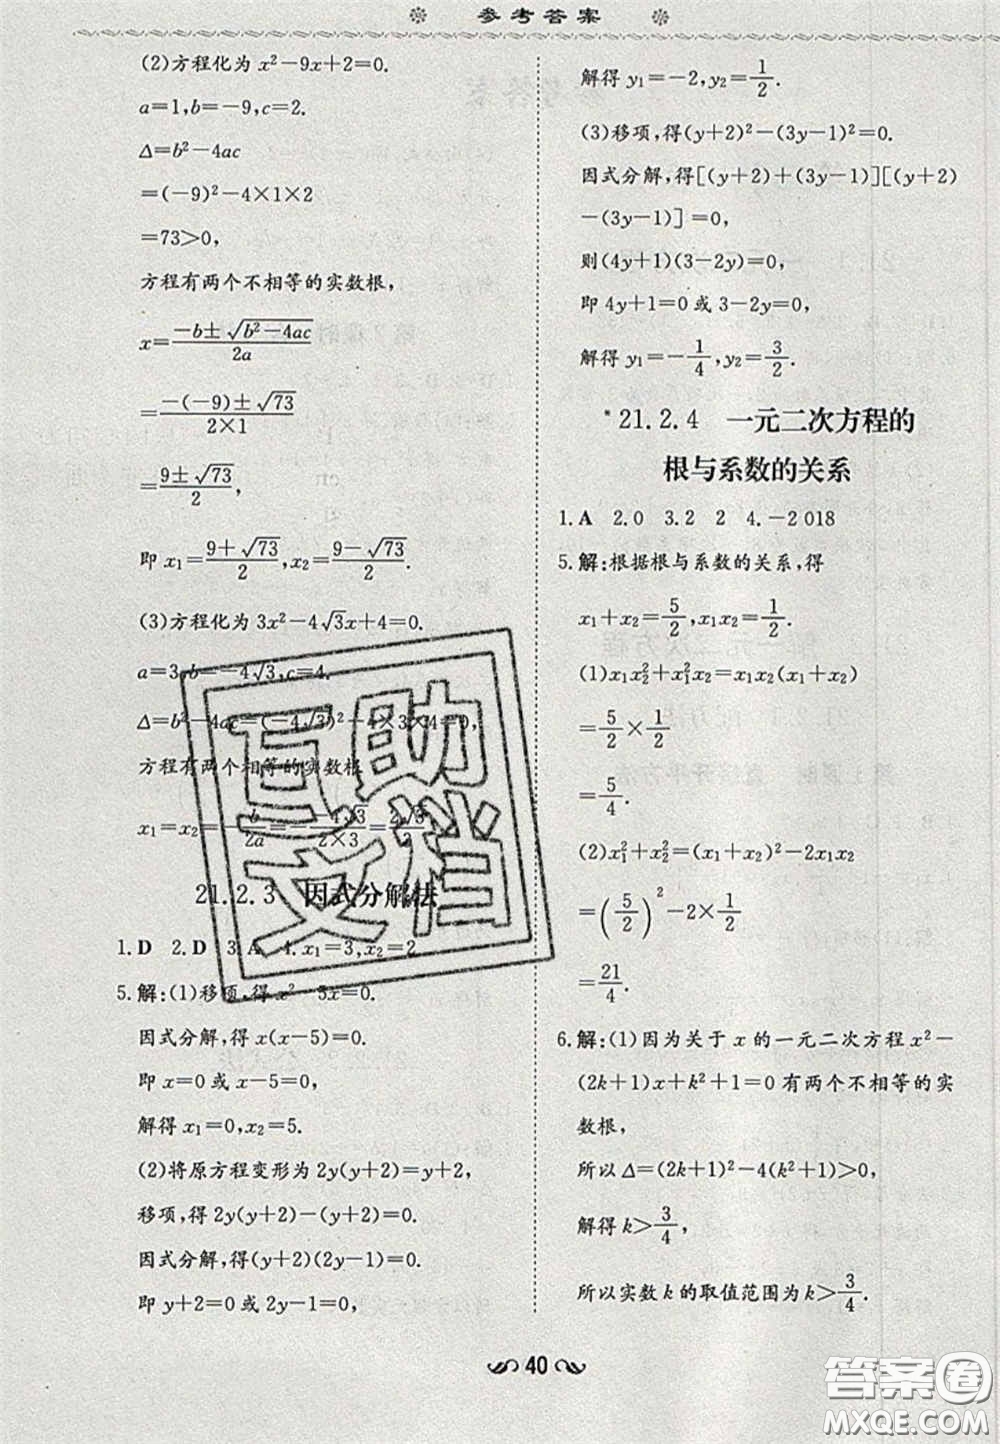 参考答案
(2)方程化为 x²-9x+2=0.
a=1,b=-9,c=2.
Δ=b²-4ac
=(-9)²-4×1×2
=73>0,
方程有两个不相等的实数根,
x=\frac{-b±\sqrt{b²-4ac}}{2a}
=\frac{-(-9)±\sqrt{73}}{2×1}
=\frac{9±\sqrt{73}}{2},
即 x₁=\frac{9+\sqrt{73}}{2},x₂=\frac{9-\sqrt{73}}{2}.
(3)方程化为 3x²-4√3x+4=0.
a=3,b=-4√3,c=4.
Δ=b²-4ac=(-4√3)²-4×3×4=0,
方程有两个相等的实数根
x₁=x₂=-\frac{b}{2a}=-\frac{-4√3}{2×3}=\frac{2√3}{3}
21.2.3 因式分解法
1.D 2.D 3.A 4.x₁=3,x₂=2
5.解:(1)移项,得 x²-5x=0.
因式分解,得 x(x-5)=0.
即 x=0 或 x-5=0.
解得 x₁=0,x₂=5.
(2)将原方程变形为 2y(y+2)=y+2,
移项,得 2y(y+2)-(y+2)=0.
因式分解,得(y+2)(2y-1)=0.
即 y+2=0 或 2y-1=0,
解得 y₁=-2,y₂=\frac{1}{2}.
(3)移项,得(y+2)²-(3y-1)²=0.
因式分解,得[(y+2)+(3y-1)][(y+2)
-(3y-1)]=0,
则(4y+1)(3-2y)=0,
即 4y+1=0 或 3-2y=0,
解得 y₁=-\frac{1}{4},y₂=\frac{3}{2}.
*21.2.4 一元二次方程的
根与系数的关系
1.A 2.0 3.2 2 4.-2 018
5.解:根据根与系数的关系,得
x₁+x₂=\frac{5}{2},x₁x₂=\frac{1}{2}.
(1)x₁x₂²+x₁²x₂=x₁x₂(x₁+x₂)
=\frac{5}{2}×\frac{1}{2}
=\frac{5}{4}.
(2)x₁²+x₂²=(x₁+x₂)²-2x₁x₂
=(\frac{5}{2})²-2×\frac{1}{2}
=\frac{21}{4}.
6.解:(1)因为关于 x 的一元二次方程 x²-
(2k+1)x+k²+1=0 有两个不相等的实
数根,
所以 Δ=(2k+1)²-4(k²+1)>0,
解得 k>\frac{3}{4},
所以实数 k 的取值范围为 k>\frac{3}{4}.
40
互助
文档
答案圈
MXQE.COM